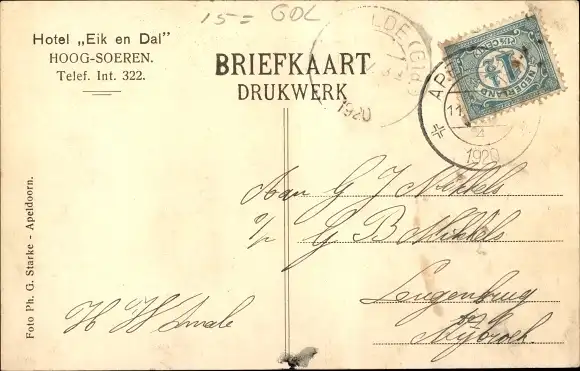 15= GDL
Hotel „Eik en Dal"
HOOG-SOEREN.
Telef. Int. 322.
BRIEFKAART
DRUKWERK
LDE (Gld)
1920
AP
11
1920
NEDERLAND
1½
Aan G J Nikkels
p/r G B Nikkels
Lengenbrug
Nijbroek.
H W Smale
Foto Ph. G. Starke - Apeldoorn.